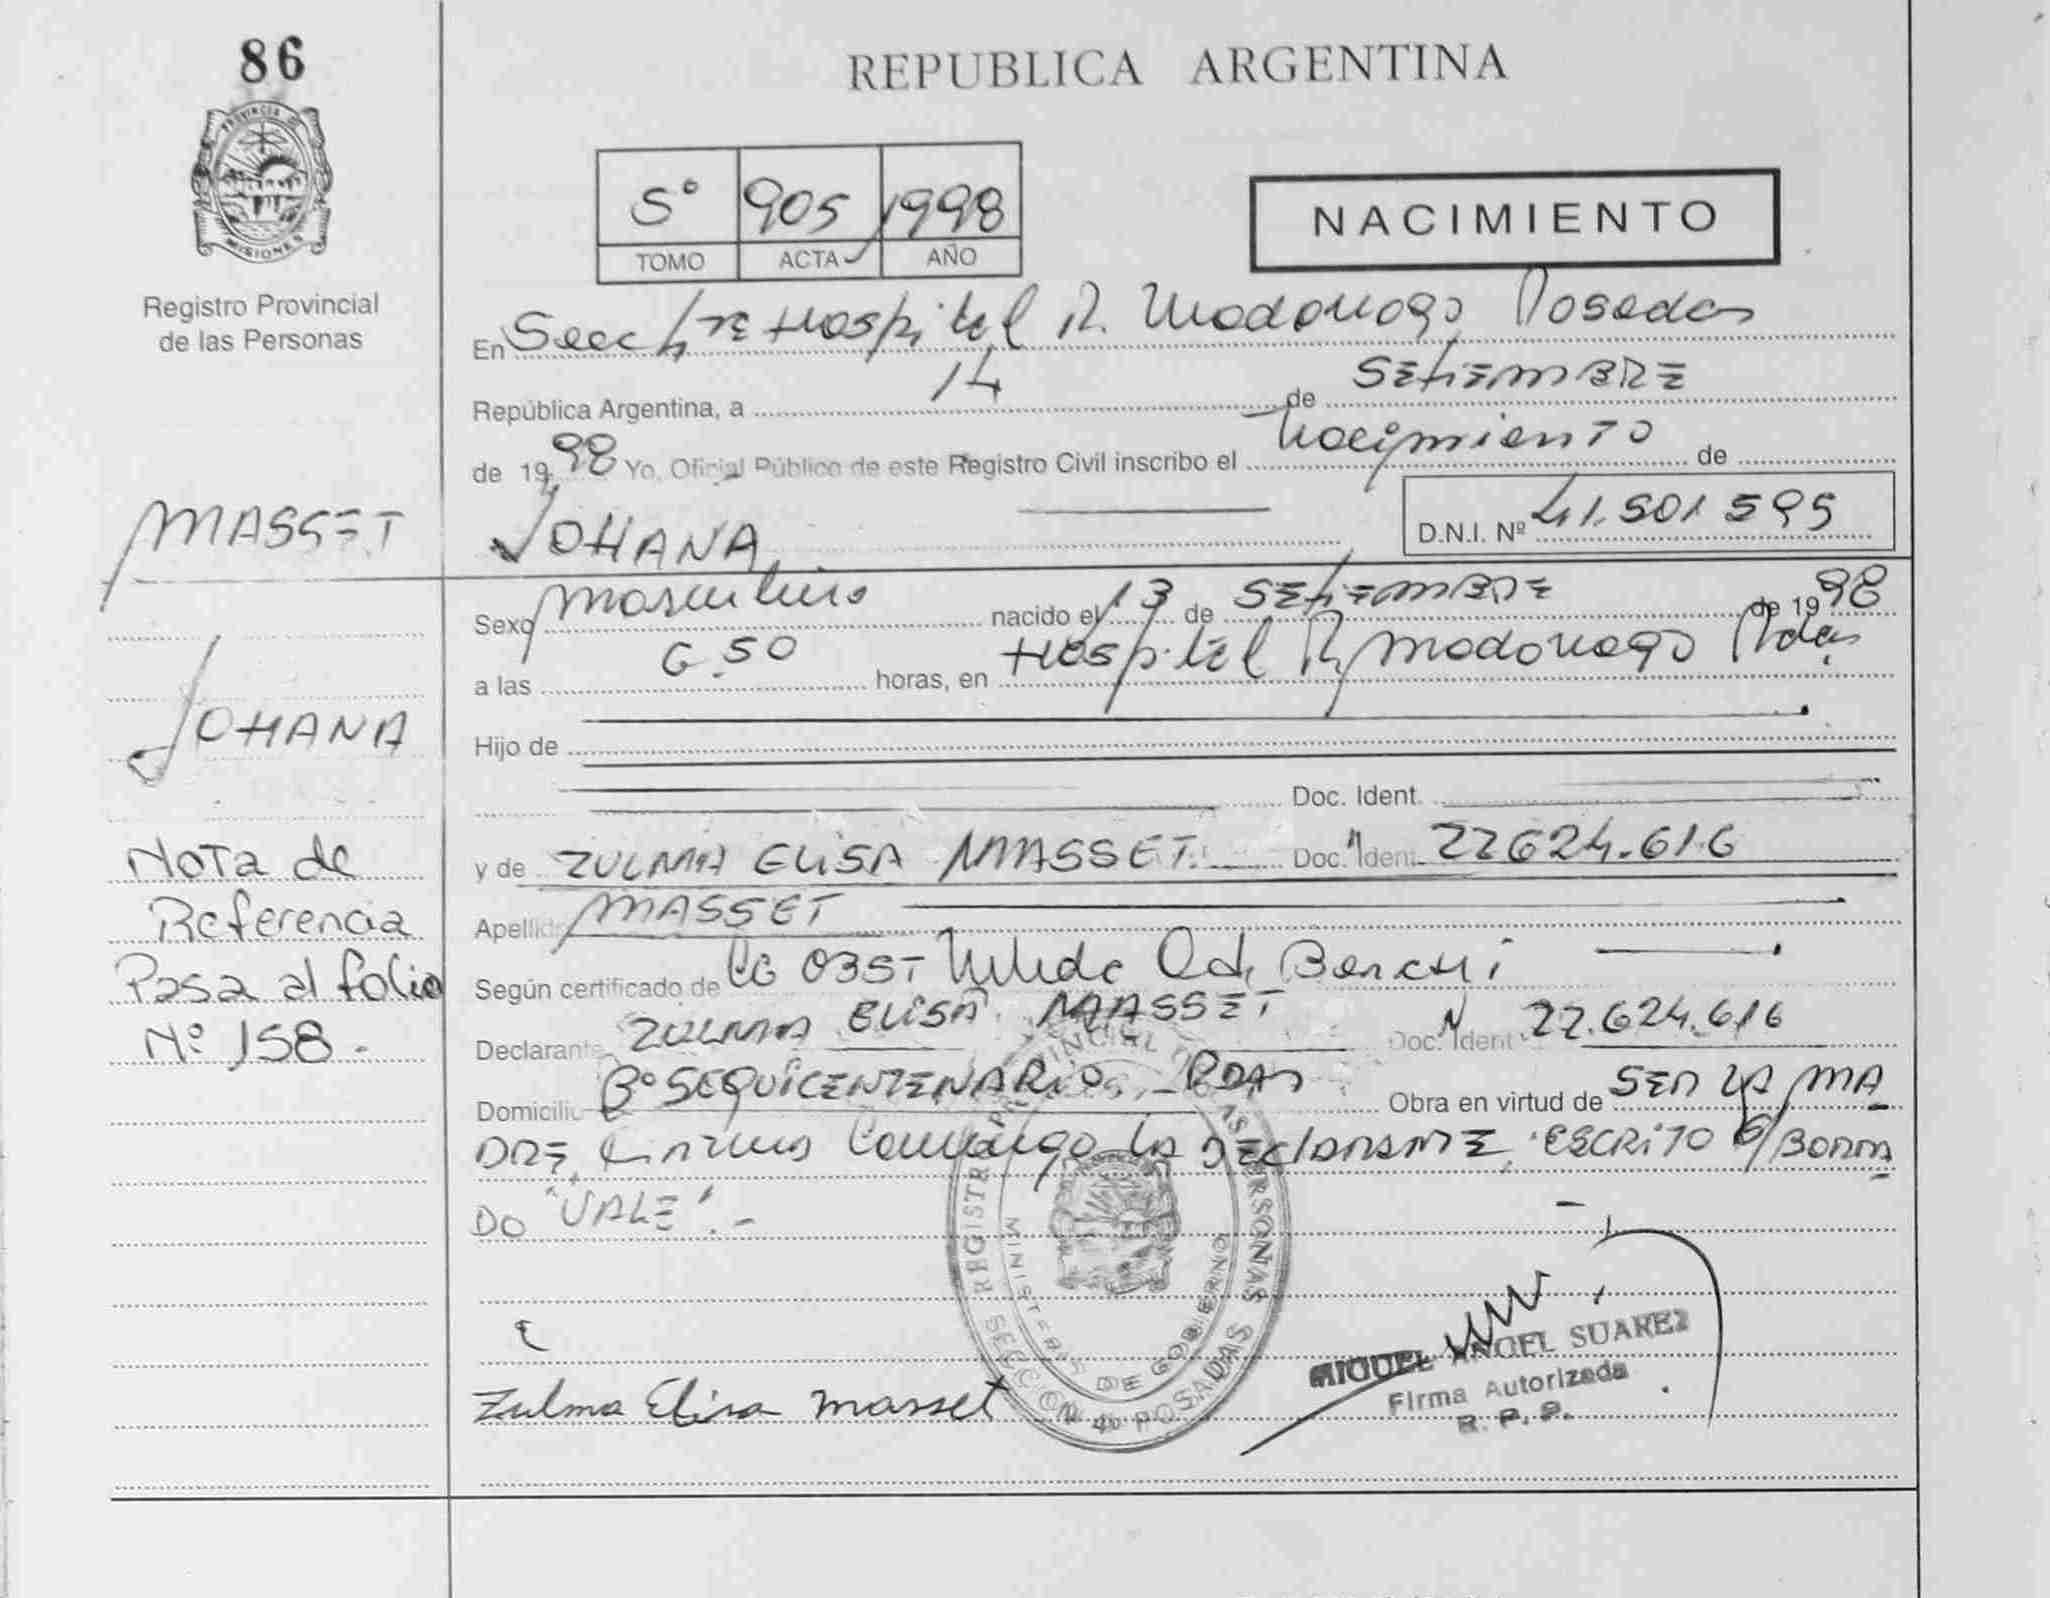 86
REPUBLICA ARGENTINA
PROVINCIA DE MISIONES
Registro Provincial
de las Personas
5° 905 1998
TOMO ACTA AÑO
NACIMIENTO
En Secc Hospital R. Madariaga Posadas
República Argentina, a 14 de SETIEMBRE
de 1998 Yo, Oficial Público de este Registro Civil inscribo el Nacimiento de
MASSET
JOHANA D.N.I. Nº 41.501 595
Sexo masculino nacido el 13 de SETIEMBRE de 1998
a las 6.50 horas, en Hospital R. Madariaga Pdas
JOHANA
Hijo de
Doc. Ident.
y de ZULMA ELISA MASSET. Doc. Ident. 22624.616
Apellido MASSET
Según certificado de OBST
Declarante ZULMA ELISA MASSET Doc. Ident. 22.624.616
Domicilio Bº SEQUICENTENARIO - PDAS Obra en virtud de SER LA MA
DRE Firma Conmigo la DECLARANTE. ESCRITO S/BORRA
DO "VALE".-
Nota de
Referencia
Pasa al folio
Nº 158.-
REGISTRO PROVINCIAL DE LAS PERSONAS
MINISTERIO DE GOBIERNO
SECCION POSADAS
Zulma Elisa Masset
MIGUEL ANGEL SUAREZ
Firma Autorizada
R. P. P.